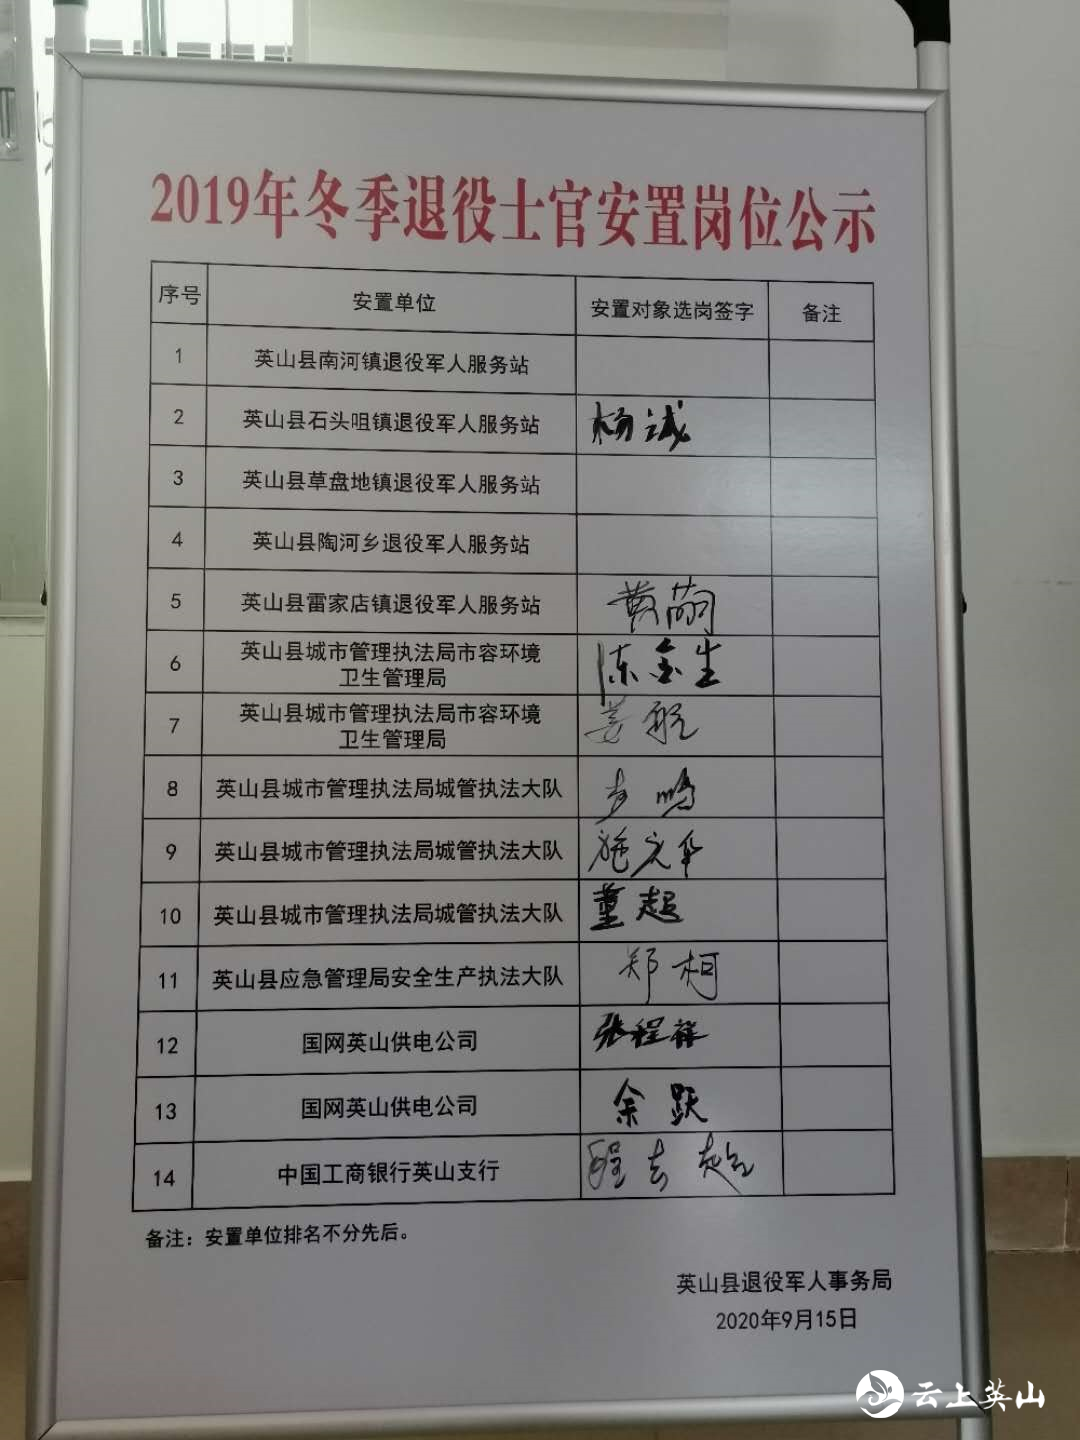 2019年冬季退役士官安置岗位公示
序号 安置单位 安置对象选岗签字 备注
1 英山县南河镇退役军人服务站
2 英山县石头咀镇退役军人服务站 杨诚
3 英山县草盘地镇退役军人服务站
4 英山县陶河乡退役军人服务站
5 英山县雷家店镇退役军人服务站 黄
6 英山县城市管理执法局市容环境
卫生管理局 陈金生
7 英山县城市管理执法局市容环境
卫生管理局 姜
8 英山县城市管理执法局城管执法大队 鸣
9 英山县城市管理执法局城管执法大队 施 华
10 英山县城市管理执法局城管执法大队 董超
11 英山县应急管理局安全生产执法大队 郑柯
12 国网英山供电公司 张程祥
13 国网英山供电公司 余跃
14 中国工商银行英山支行 程
备注：安置单位排名不分先后。
英山县退役军人事务局
2020年9月15日
云上英山